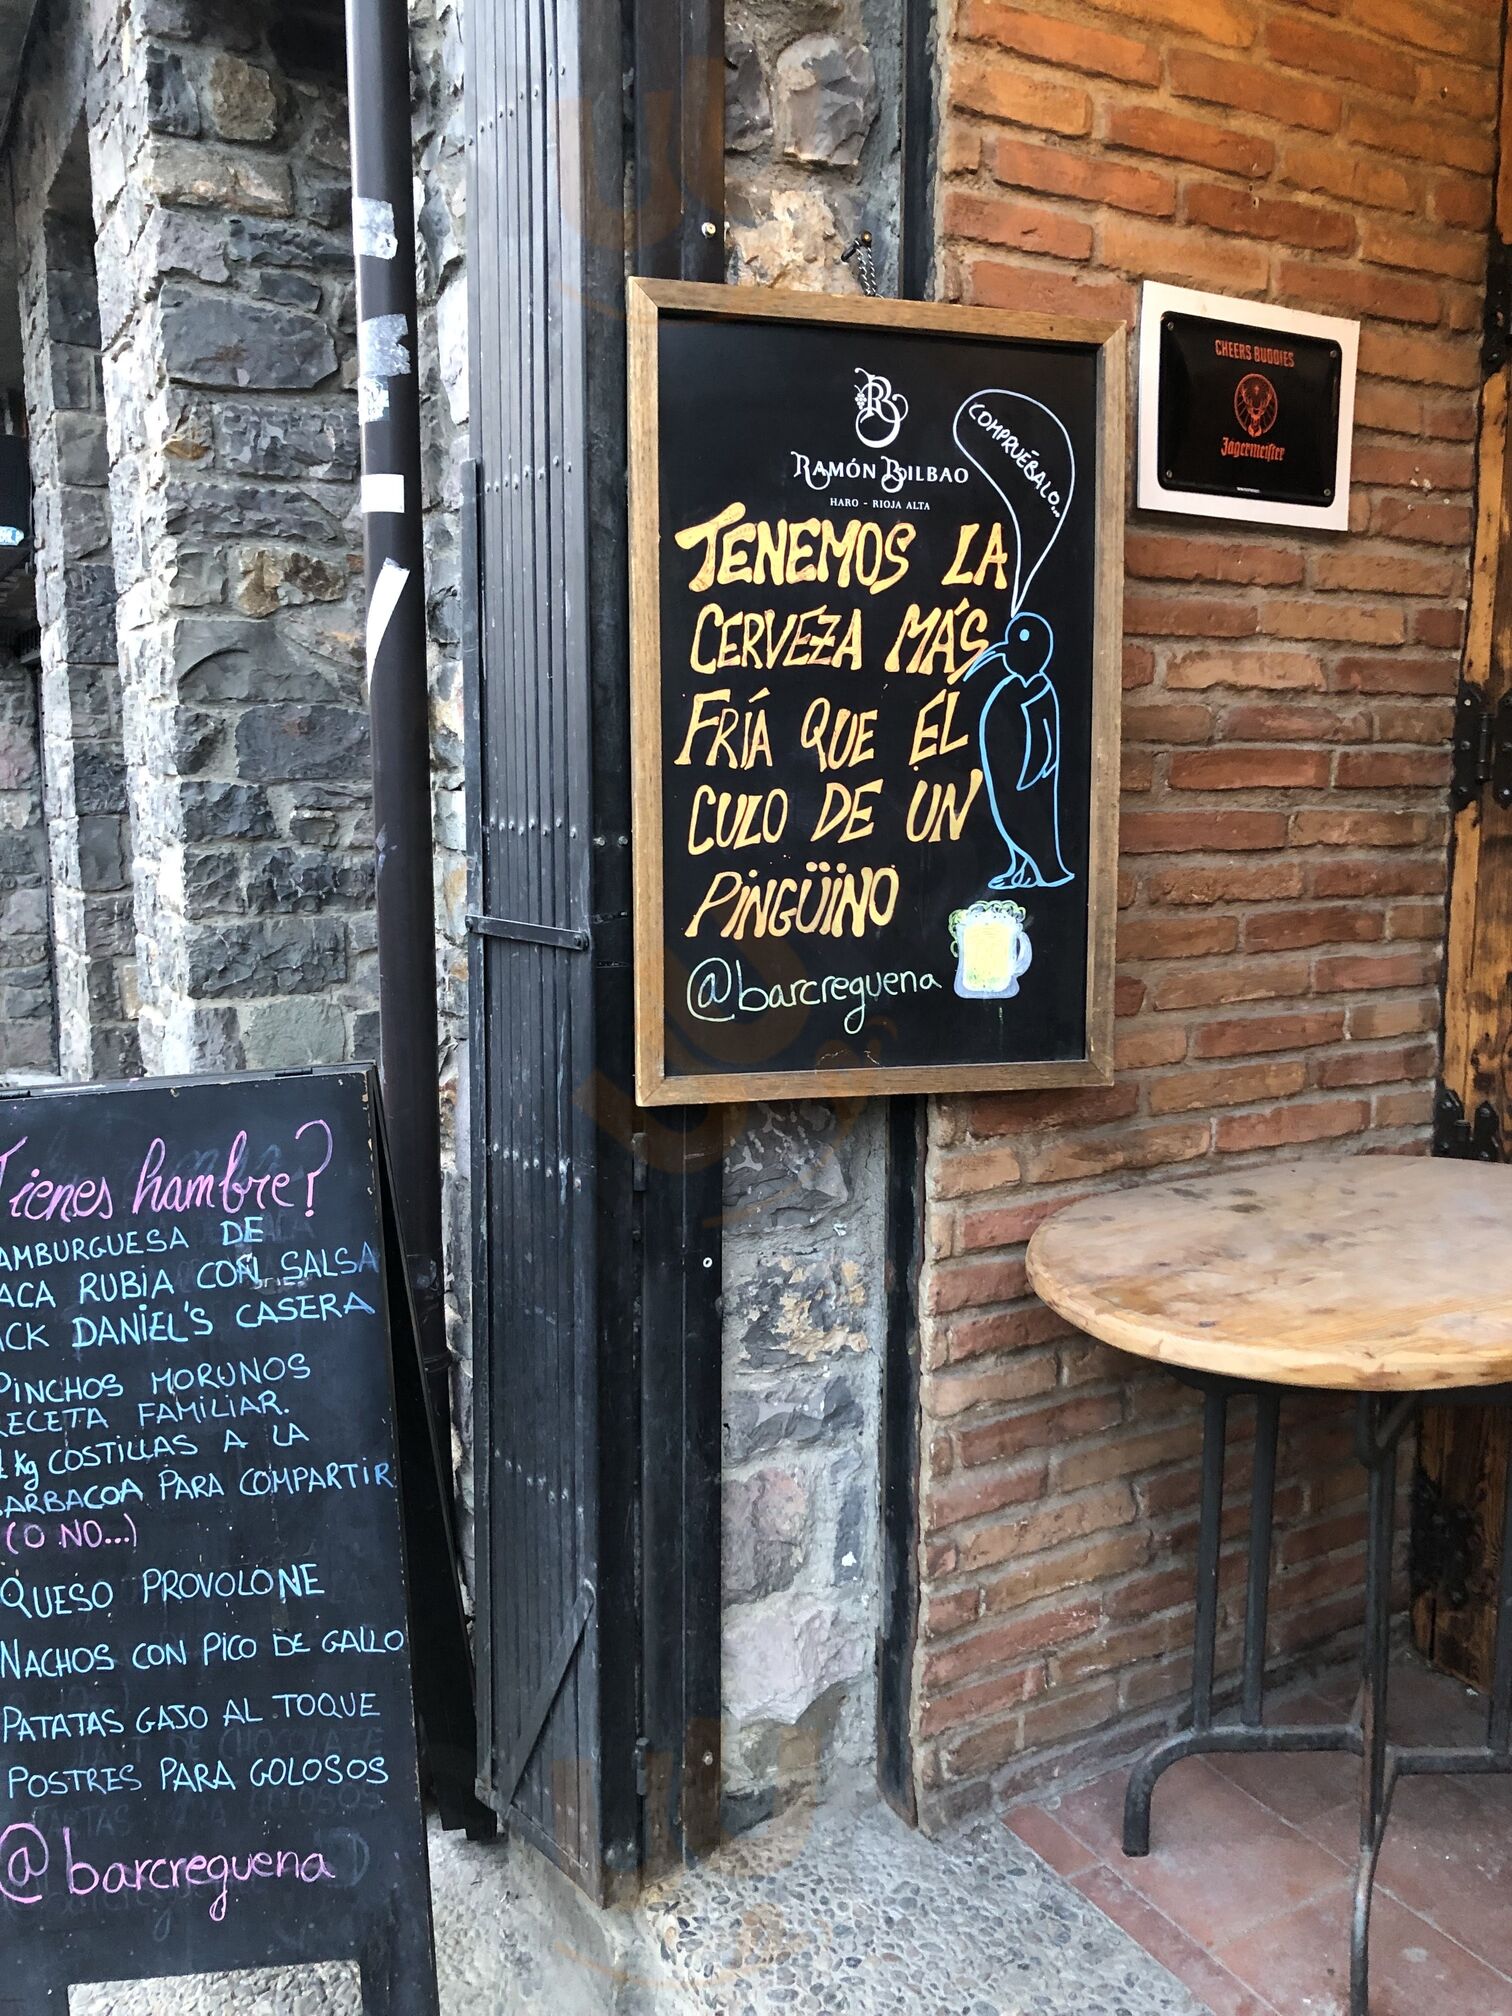 RB
RAMÓN BILBAO
HARO - RIOJA ALTA
COMPRUÉBALO...
TENEMOS LA
CERVEZA MÁS
FRÍA QUE EL
CULO DE UN
PINGÜINO
@barcreguena
CHEERS BUDDIES
Jägermeister
Tienes hambre?
AMBURGUESA DE
ACA RUBIA CON SALSA
ACK DANIEL'S CASERA
PINCHOS MORUNOS
RECETA FAMILIAR.
1 kg COSTILLAS A LA
BARBACOA PARA COMPARTIR
(O NO...)
QUESO PROVOLONE
NACHOS CON PICO DE GALLO
PATATAS GAJO AL TOQUE
POSTRES PARA GOLOSOS
@barcreguena